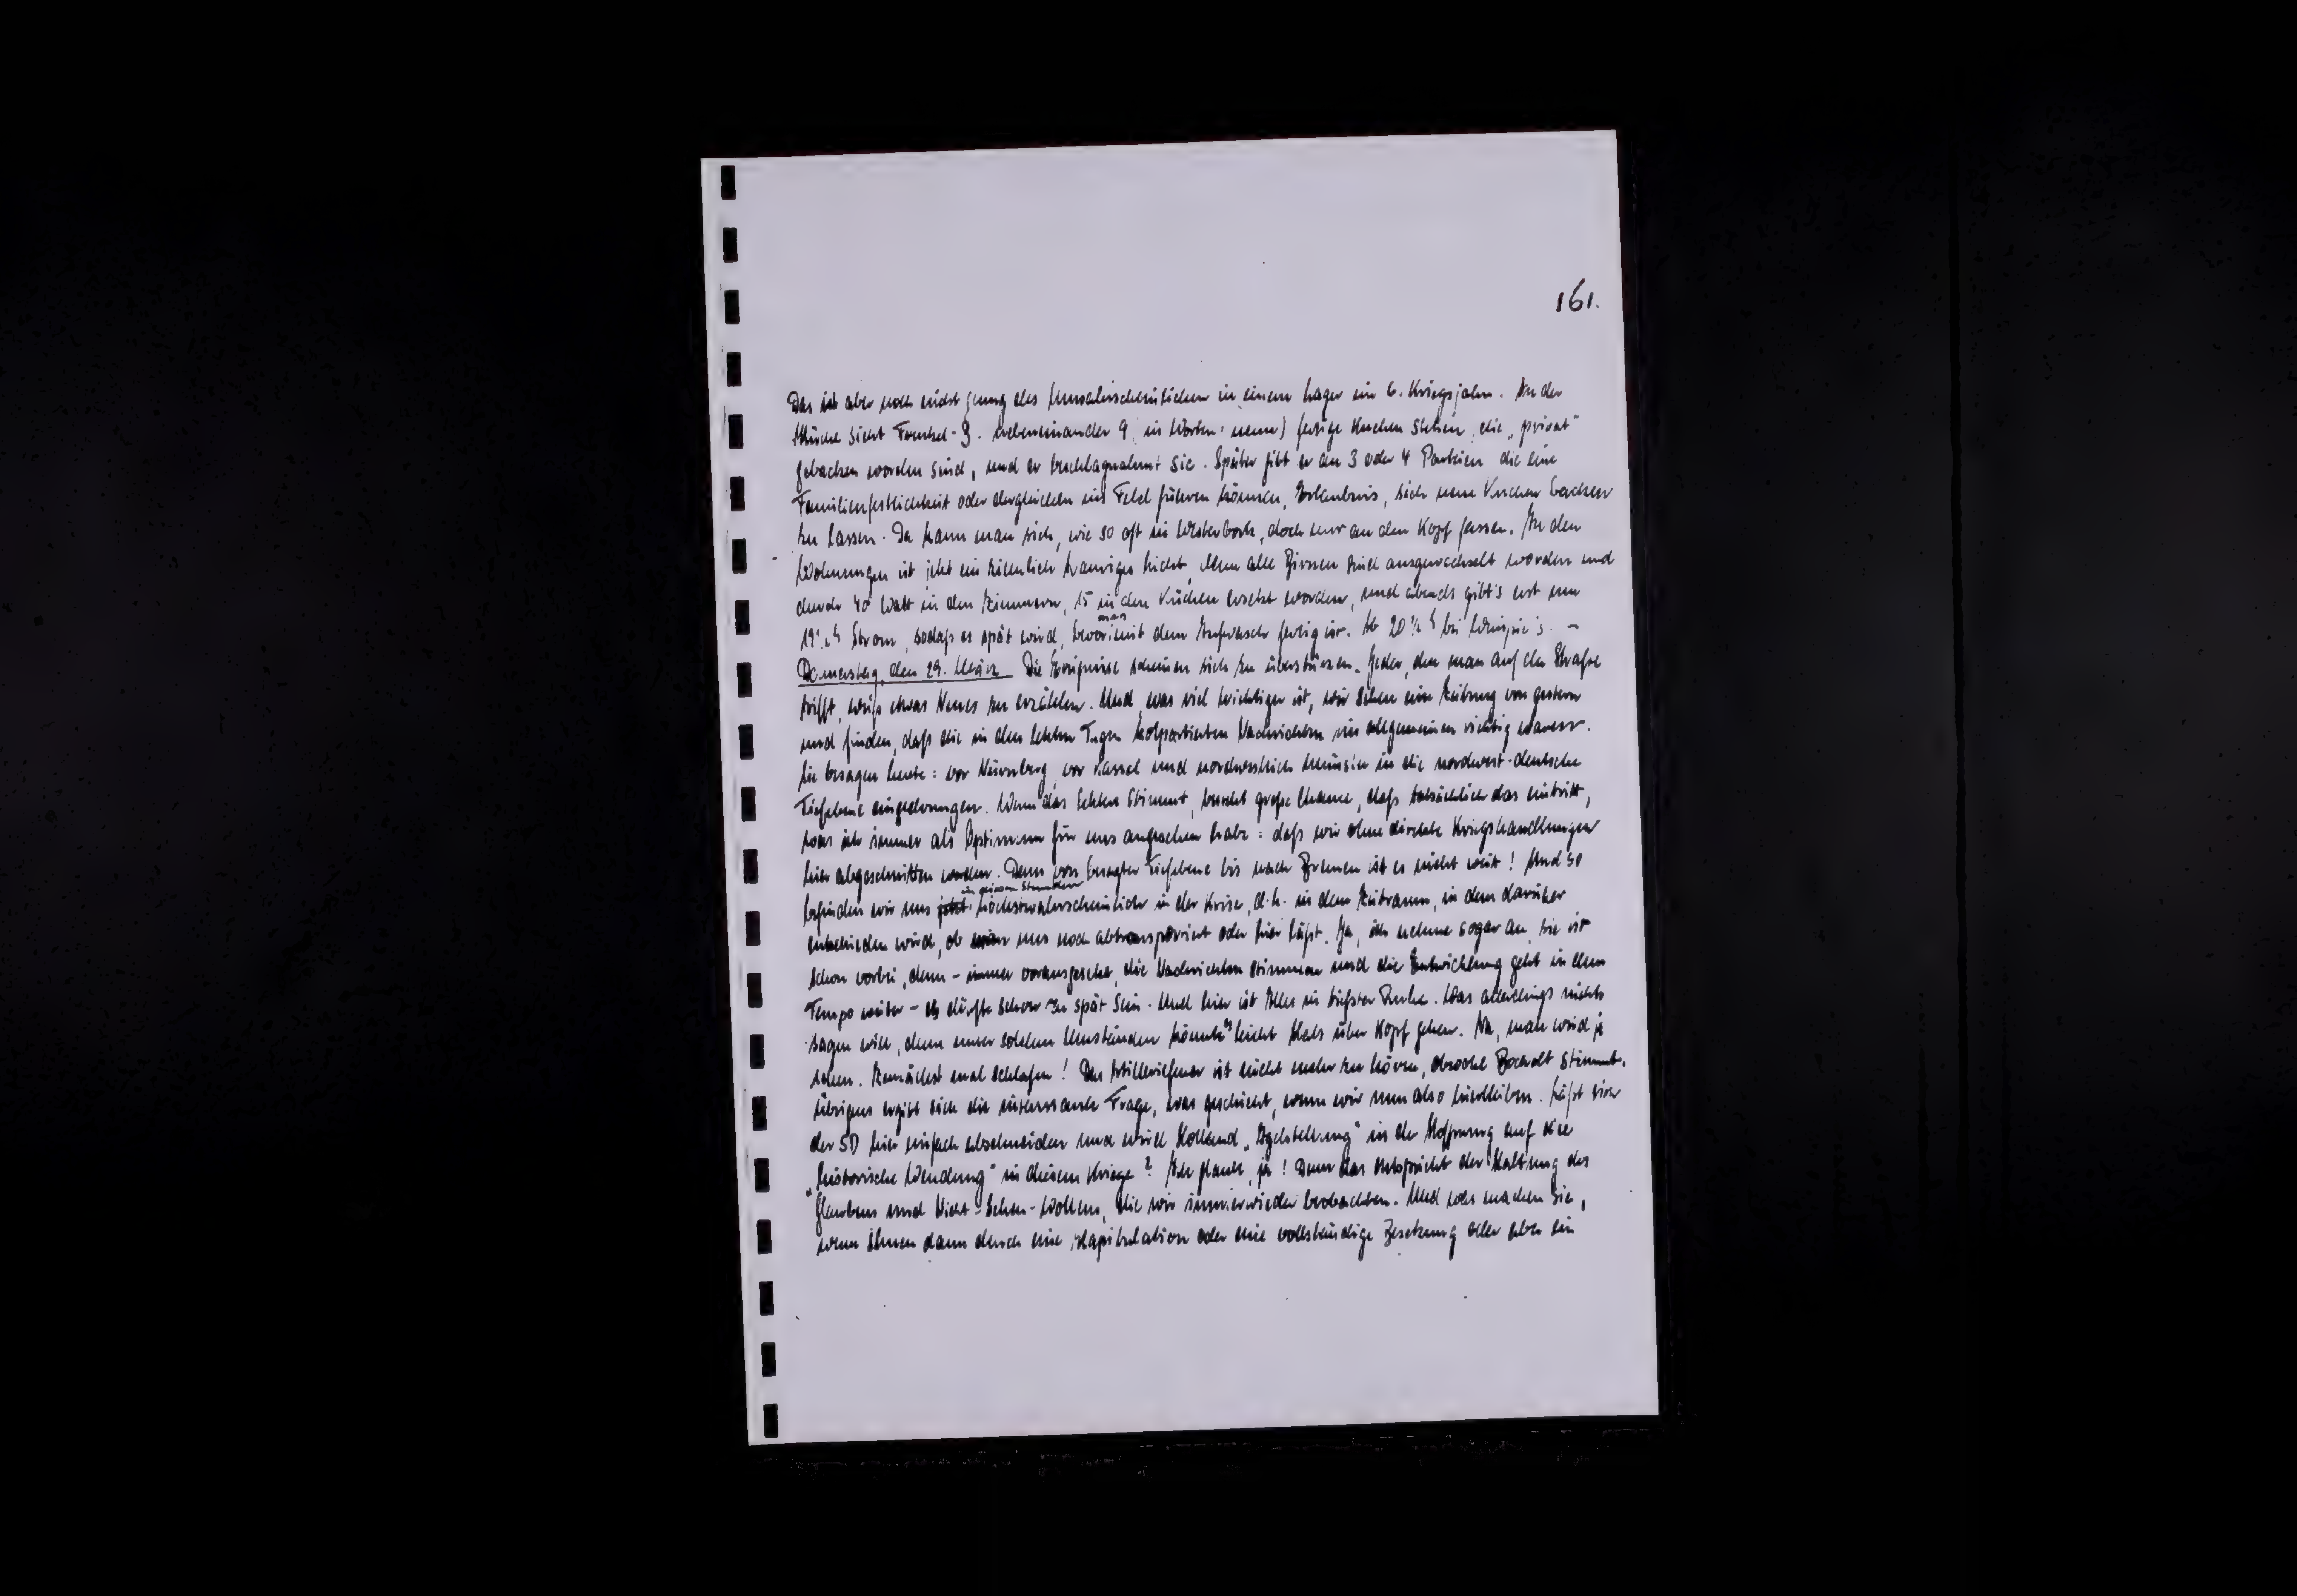 161.
Das ist aber noch nicht genug des Unwahrscheinlichen in einem Lager im 6. Kriegsjahr. In der
Küche sieht Frenkel-J. nebeneinander 9, in Worten: neun) fertige Kuchen stehen, die „privat"
gebacken worden sind, und er beschlagnahmt sie. Später gibt er an 3 oder 4 Parteien die eine
Familienfestlichkeit oder dergleichen ins Feld führen können, Erlaubnis, sich neue Kuchen backen
zu lassen. Da kann man sich, wie so oft in Westerbork, doch nur an den Kopf fassen. In den
Wohnungen ist jetzt ein ziemlich trauriges Licht, denn alle Birnen sind ausgewechselt worden und
durch 40 Watt in den Zimmern, 15 in den Küchen ersetzt worden, und abends gibt's erst um
19½ h Strom, sodaß es spät wird, bevor man mit dem Aufwasch fertig ist. Ab 20½ h bei –
Donnerstag, den 29. März Die Ereignisse scheinen sich zu überstürzen. Jeder, den man auf der Straße
trifft, weiß etwas Neues zu erzählen. Und, was viel wichtiger ist, wir sehen eine Zeitung von gestern
und finden, daß die in den letzten Tagen kolportierten Nachrichten im allgemeinen richtig waren.
Sie besagen heute: vor Nürnberg, vor Kassel und nordwestlich Münster in die nordwest-deutsche
Tiefebene eingedrungen. Wenn das letztere stimmt, besteht große Chance, daß tatsächlich das eintritt,
was ich immer als Optimum für uns angesehen habe: daß wir ohne direkte Kriegshandlungen
hier abgeschnitten werden. Denn von besagter Tiefebene bis nach Bremen ist es nicht weit! Und so
befinden wir uns jetzt in diesen Stunden höchstwahrscheinlich in der Krise, d.h. in dem Zeitraum, in dem darüber
entschieden wird, ob man uns noch abtransportiert oder hier läßt. Ja, ich nehme sogar an, sie ist
schon vorbei, denn – immer vorausgesetzt, die Nachrichten stimmen und die Entwicklung geht in dem
Tempo weiter – es dürfte schon zu spät sein. Und hier ist Alles in tiefster Ruhe. Was allerdings nichts
sagen will, denn unter solchen Umständen könnte es leicht Hals über Kopf gehen. Na, man wird ja
sehen. Zunächst mal schlafen! Das Artilleriefeuer ist nicht mehr zu hören, obwohl Bocholt stimmt.
Übrigens ergibt sich die interessante Frage, was geschieht, wenn wir nun also hierbleiben. Läßt sich
der SD hier einfach abschneiden und wird Holland „Igelstellung" in der Hoffnung auf die
„historische Wendung" in diesem Kriege? Ich glaube, ja! Denn das entspricht der Haltung des
Glaubens und Nicht-Sehen-Wollens, die wir immer wieder beobachten. Und was machen sie,
wenn ihnen dann durch eine Kapitulation oder eine vollständige Besetzung oder aber ein